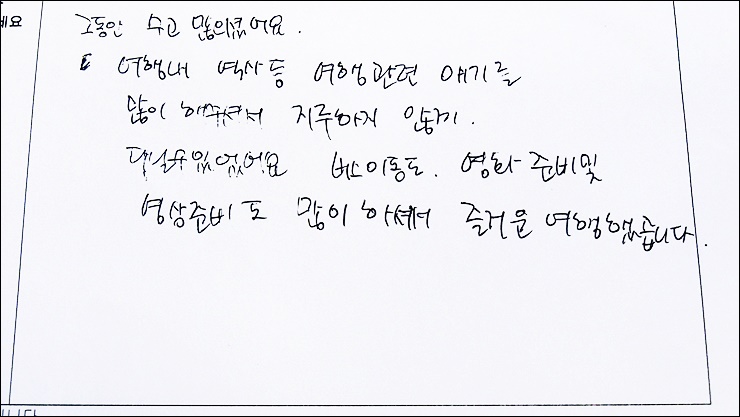 세요
그동안 수고 많으셨어요.
여행내 역사등 여행관련 얘기를
많이 해주셔서 지루하지 않게.
다닐수 있었어요 버스이동도. 영화 준비및
영상준비도 많이 하셔서 즐거운 여행했습니다.
니다